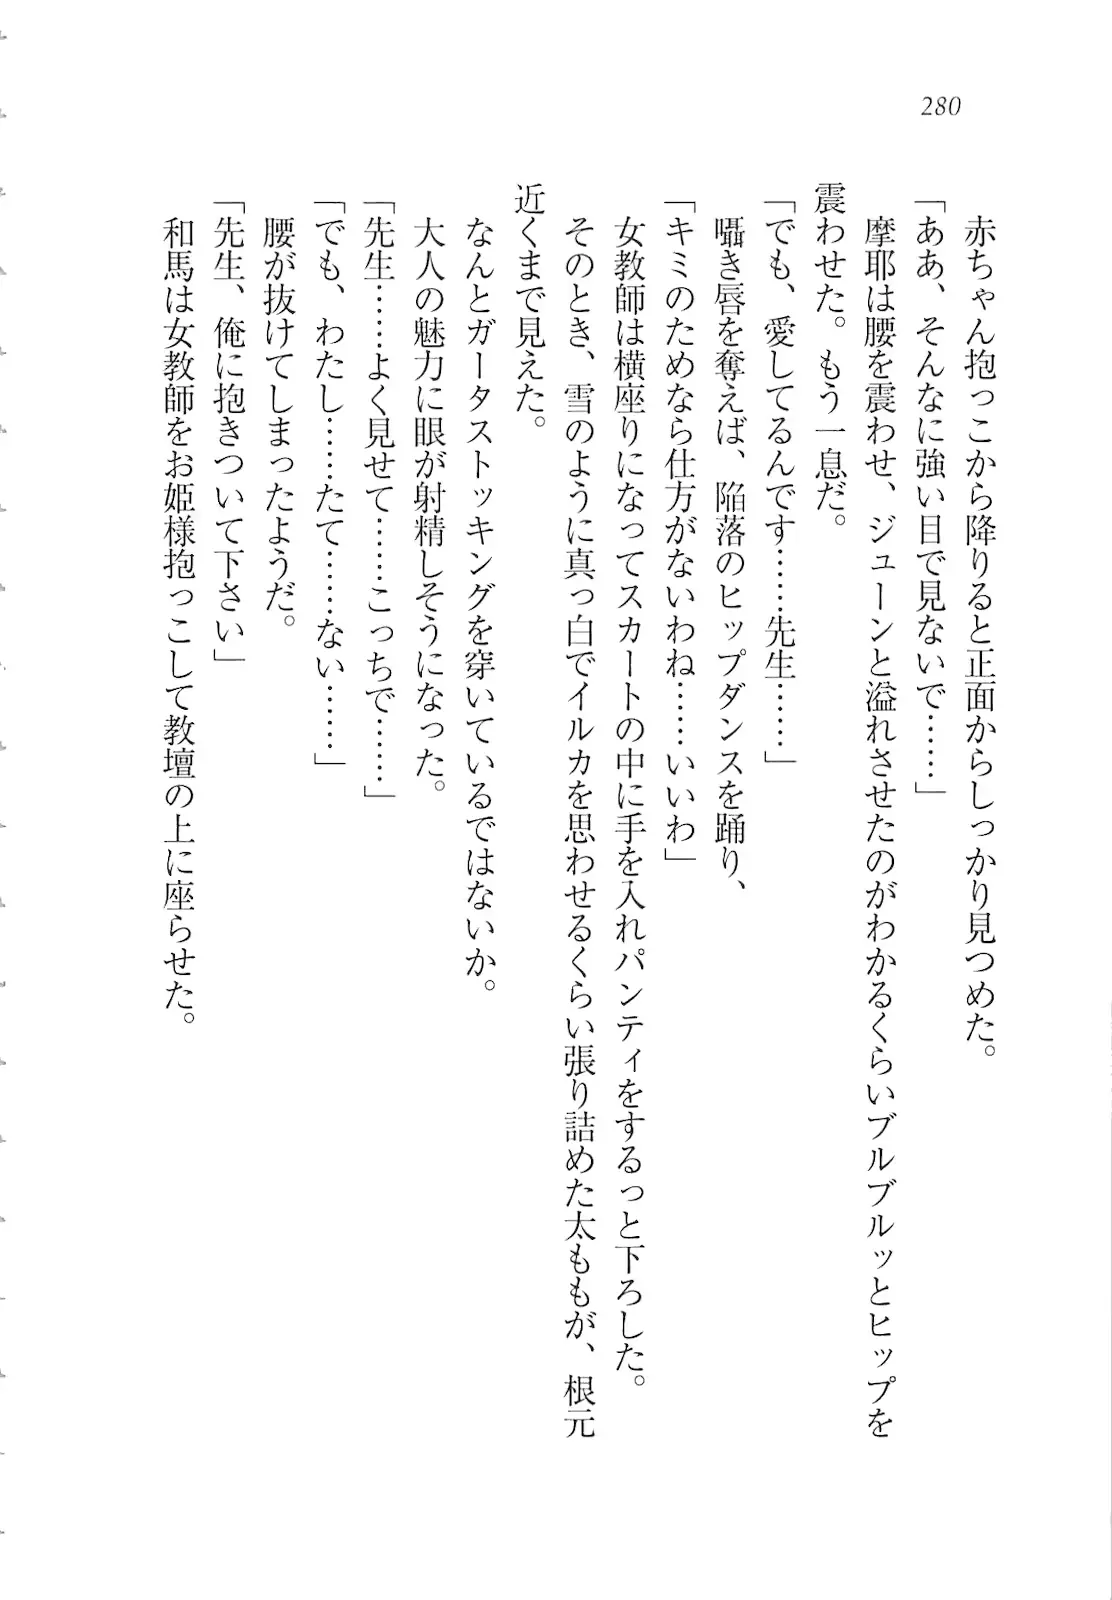 280
赤ちゃん抱っこから降りると正面からしっかり見つめた。
「ああ、そんなに強い目で見ないで……」
摩耶は腰を震わせ、ジューンと溢れさせたのがわかるくらいブルブルッとヒップを
震わせた。もう一息だ。
「でも、愛してるんです……先生……」
囁き唇を奪えば、陥落のヒップダンスを踊り、
「キミのためなら仕方がないわね……いいわ」
女教師は横座りになってスカートの中に手を入れパンティをするっと下ろした。
そのとき、雪のように真っ白でイルカを思わせるくらい張り詰めた太ももが、根元
近くまで見えた。
なんとガータストッキングを穿いているではないか。
大人の魅力に眼が射精しそうになった。
「先生……よく見せて……こっちで……」
「でも、わたし……たて……ない……」
腰が抜けてしまったようだ。
「先生、俺に抱きついて下さい」
和馬は女教師をお姫様抱っこして教壇の上に座らせた。